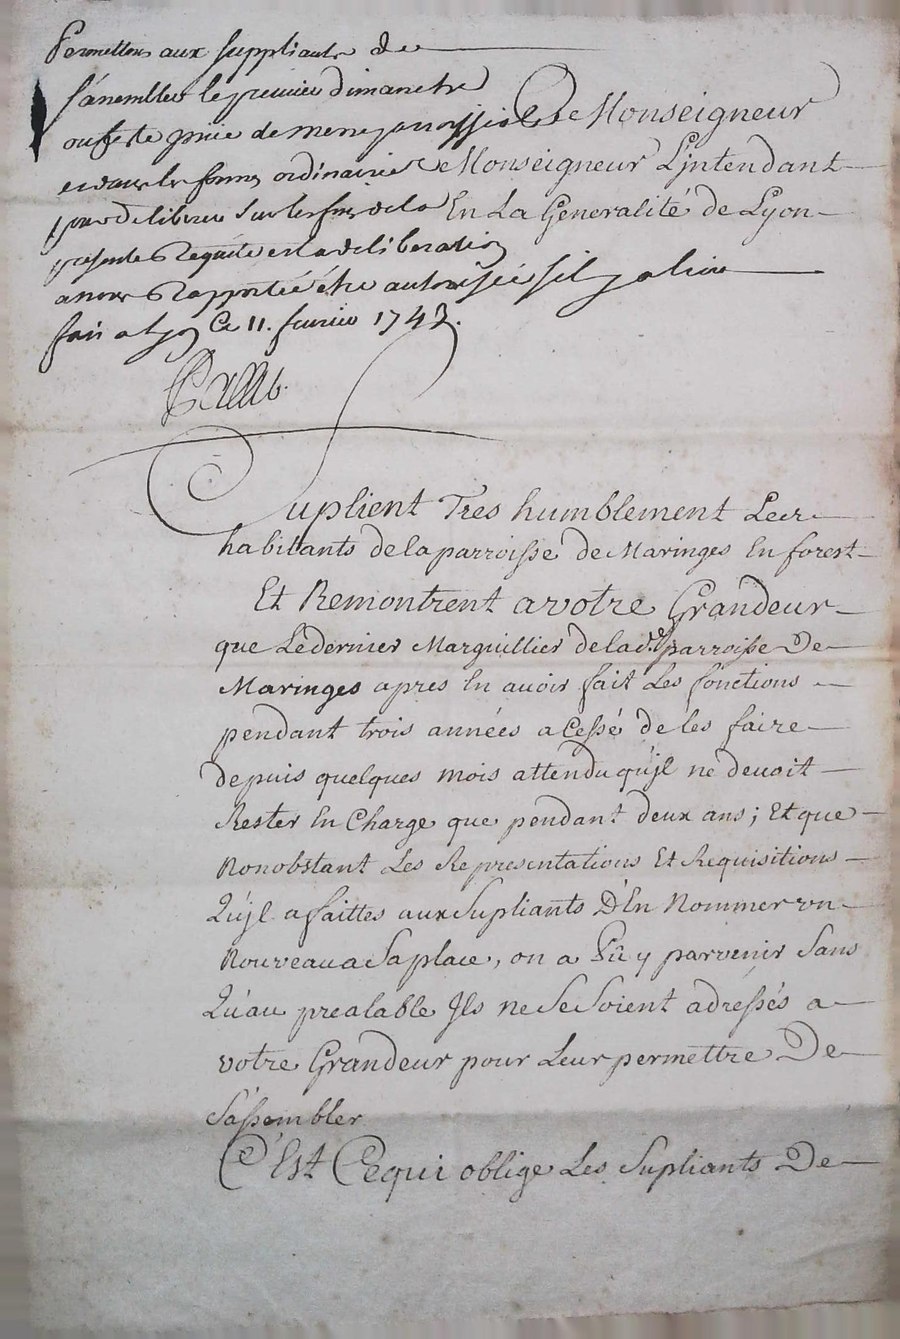 Permettons aux suppliants de
s'assembler le premier dimanche
ou feste de
et dans les formes ordinaires
pour deliberer sur les fins de la
presente Requête et la deliberation
a nous Rapportée être autorisée s'il
fait a Lyon Ce 11. fevrier 1743.
A Monseigneur
Monseigneur L'jntendant
En La Generalité de Lyon
Suplient Tres humblement Les
habittants de la parroisse de Maringes En forest
Et Remontrent a votre Grandeur
que Le dernier Marguillier de la d.e parroisse De
Maringes apres En auoir fait Les fonctions
pendant trois années a Cessé de les faire
depuis quelques mois attendu qu'jl ne deuoit
Rester En Charge que pendant deux ans; Et que
Nonobstant Les Representations Et Requisitions
Qu'jl a faittes aux Supliants D'En Nommer vn
Nouveau a Sa place, on a Pû y parvenir Sans
Qu'au prealable Jls ne Se Soient adressés a
votre Grandeur pour Leur permettre De
S'assembler
C'Est Ce qui oblige Les Supliants De